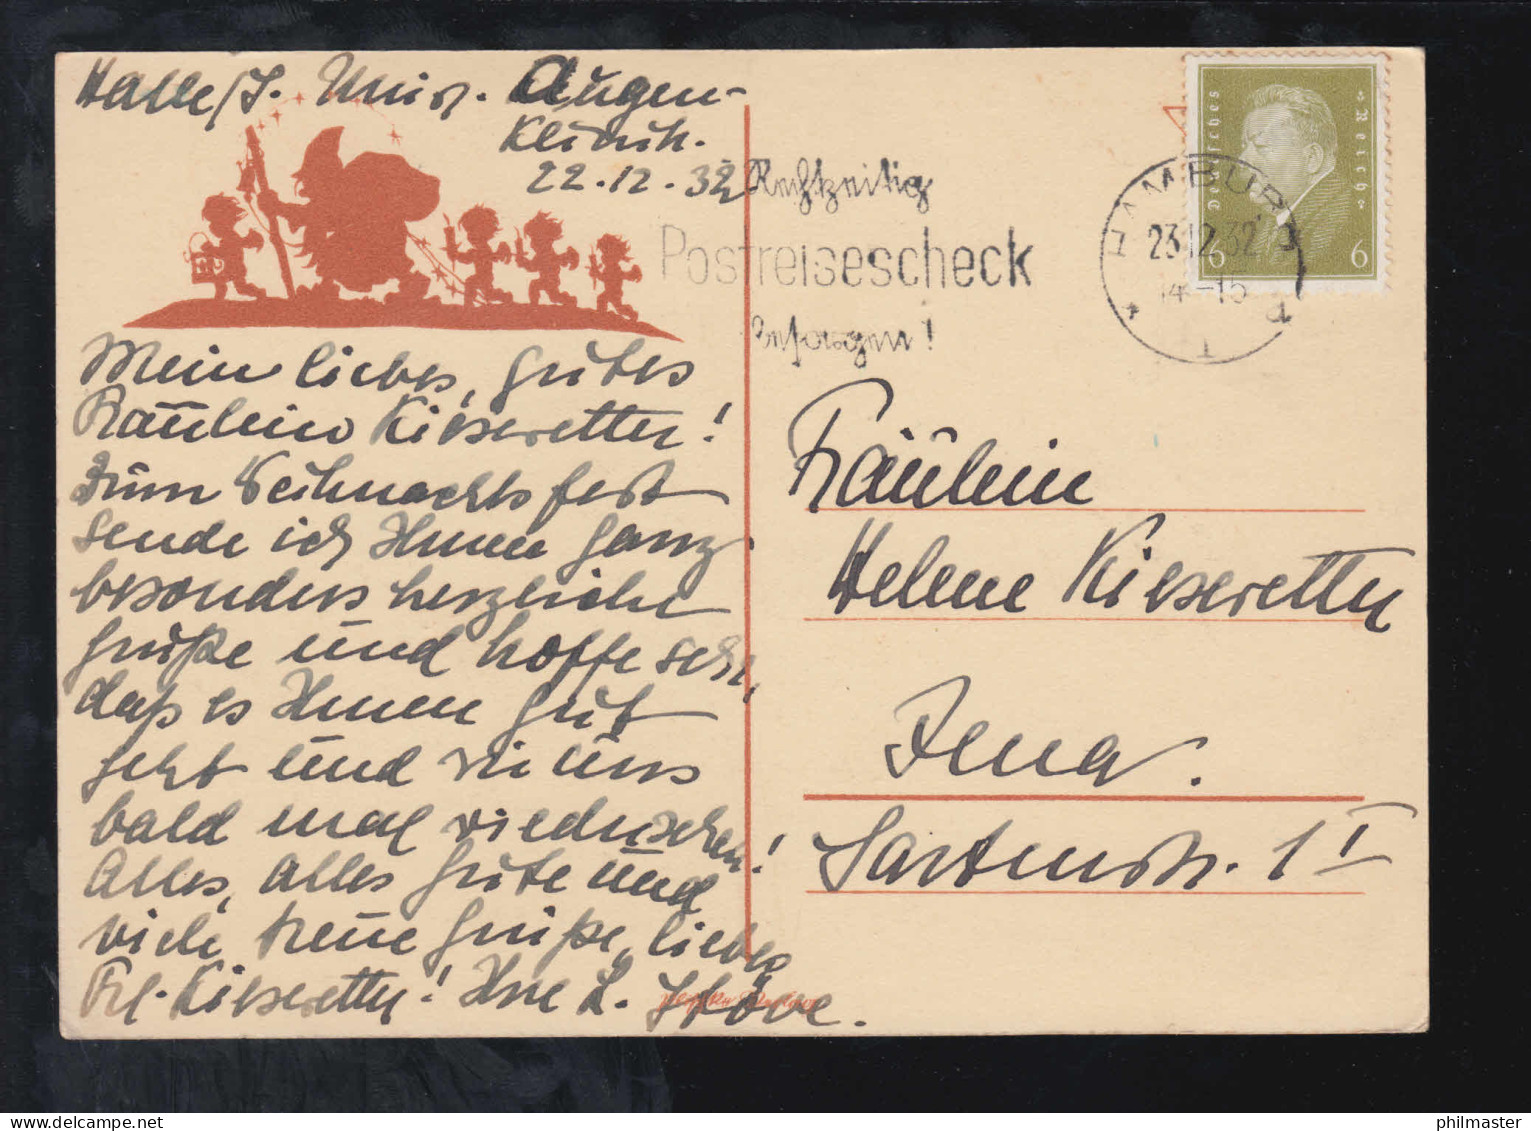 Halle/S. Univ. Augen-
Klinik.
22.12.32
Mein liebes, gutes
Fräulein Kieseretter!
Zum Weihnachtsfest
sende ich Ihnen ganz
besonders herzliche
Grüße und hoffe sehr,
daß es Ihnen gut
geht und wir uns
bald mal wiedersehen!
Alles, alles Gute und
viele treue Grüße, liebes
Frl. Kieseretter! Ihre L.
Rechtzeitig
Postreisescheck
besorgen!
Deutsches Reich
6 6
HAMBURG
23.12.32
14-15
1
Fräulein
Helene Kieseretter
Jena.
1 I
philmaster